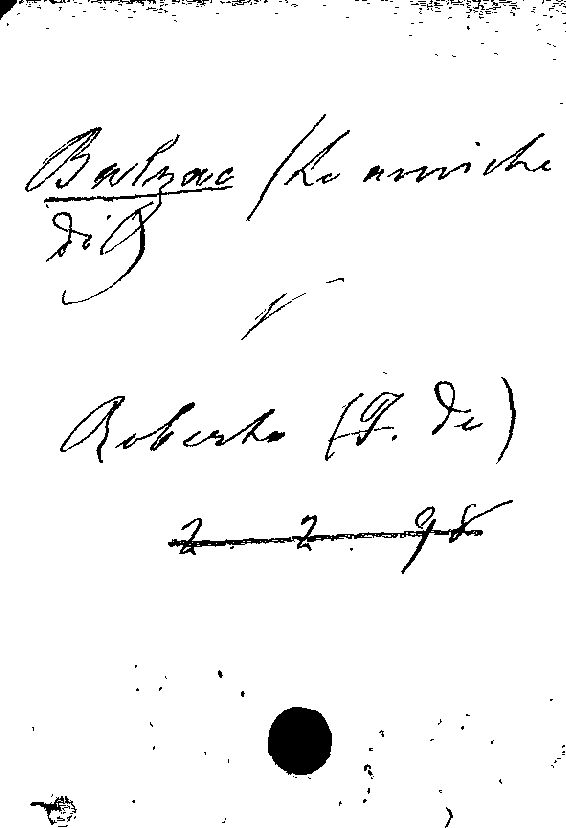 Balzac (Le amiche
di)
V
Roberto (F. de)
2. 2. 98